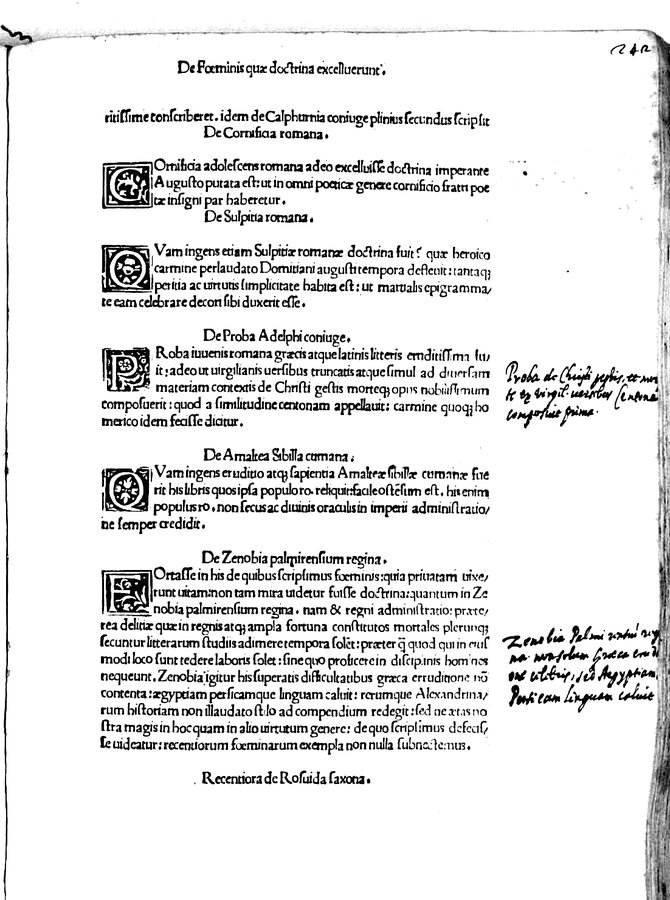 242
De Fœminis quæ doctrina excelluerunt.
ritissime conscriberet. idem de Calphurnia coniuge plinius secundus scripsit
De Cornificia romana.
COrnificia adolescens romana adeo excelluisse doctrina imperante
Augusto putata est: ut in omni poeticæ genere cornificio fratri poe
tæ insigni par haberetur.
De Sulpitia romana.
QVam ingens etiam Sulpitiæ romanæ doctrina fuit? quæ heroico
carmine perlaudato Domitiani augusti tempora defleuit: tantaqȝ
peritia ac uirtutis simplicitate habita est: ut martialis epigramma/
te eam celebrare decori sibi duxerit esse.
De Proba Adelphi coniuge.
PRoba iuuenis romana græcis atque latinis litteris eruditissima fu/
it: adeo ut uirgilianis uersibus truncatis atque simul ad diuersam
materiam contextis de Christi gestis morteqȝ opus nobilissimum
composuerit: quod a similitudine centonam appellauit: carmine quoqȝ ho
merico idem fecisse dicitur.
De Amaltea Sibilla cumana.
QVam ingens eruditio atqȝ sapientia Amalteæ sibillæ cumanæ fue
rit his libris quos ipsa populo ro. reliquit: facile ostēsum est. his enim
populus ro. non secus ac diuinis oraculis in imperii administratio/
ne semper credidit.
De Zenobia palmirensium regina.
FOrtasse in his de quibus scripsimus fœminis: quia priuatam uixe/
runt uitam: non tam mira uidetur fuisse doctrina: quantum in Ze
nobia palmirensium regina. nam & regni administratio: præte/
rea delitiæ quæ in regnis atqȝ ampla fortuna constitutos mortales plerunqȝ
secuntur litterarum studiis adimere tempora solēt: præter q̄ quod qui in eius
modi loco sunt tedere laboris solet: sine quo proficere in disciplinis homines
nequeunt. Zenobia igitur his superatis difficultatibus græca erruditione nō
contenta: ægyptiam persicamque linguam caluit: rerumque Alexandrina/
rum historiam non illaudato stilo ad compendium redegit: sed ne ætas no
stra magis in hoc quam in alio uirtutum genere: de quo scripsimus defecis/
se uideatur: recentiorum fœminarum exempla non nulla subnectemus.
Recentiora de Rosuida saxona.
Proba de Christi gestis, et mor
te ex virgil. uersibus Centonā
composuit primo.
Zenobia Palmi
na non solum Græca erudi
Persicam linguam caluit